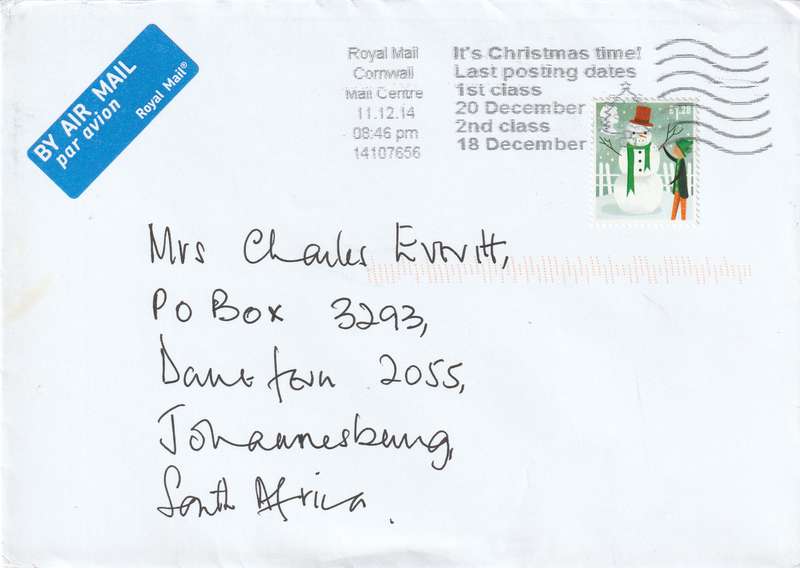 BY AIR MAIL
par avion
Royal Mail®
Royal Mail
Cornwall
Mail Centre
11.12.14
08:46 pm
14107656
It's Christmas time!
Last posting dates
1st class
20 December
2nd class
18 December
£1.28
Mrs Charles Everitt,
PO Box 3293,
Dane fern 2055,
Johannesburg,
South Africa.